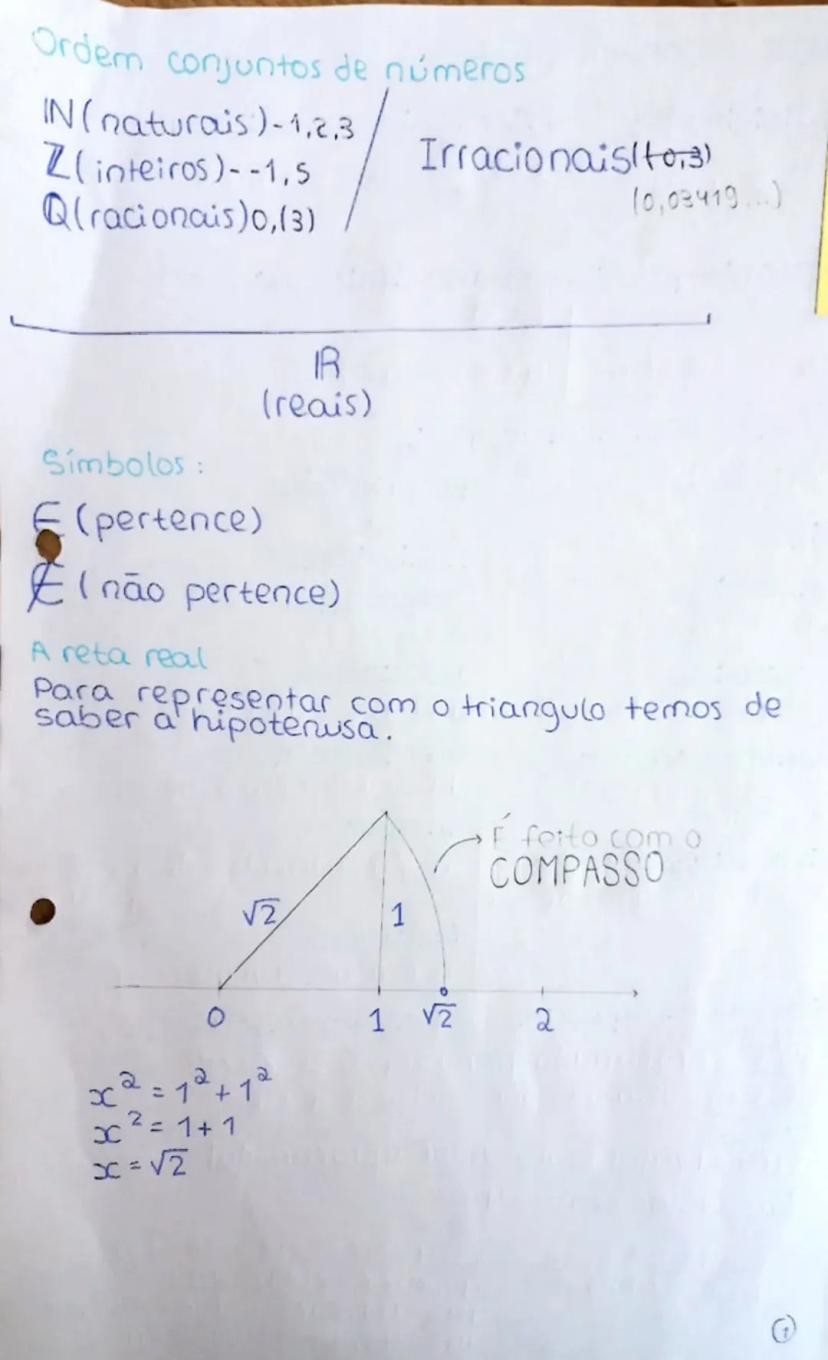 Ordem conjuntos de números
ℕ(naturais)-1,2,3
ℤ(inteiros)--1,5
ℚ(racionais)0,(3)
Irracionais
(0,03419...)
ℝ
(reais)
Símbolos:
∈ (pertence)
∉ (não pertence)
A reta real
Para representar com o triangulo temos de
saber a hipotenusa.
É feito com o
COMPASSO
√2
1
0
1
√2
2
x² = 1² + 1²
x² = 1+1
x = √2
1